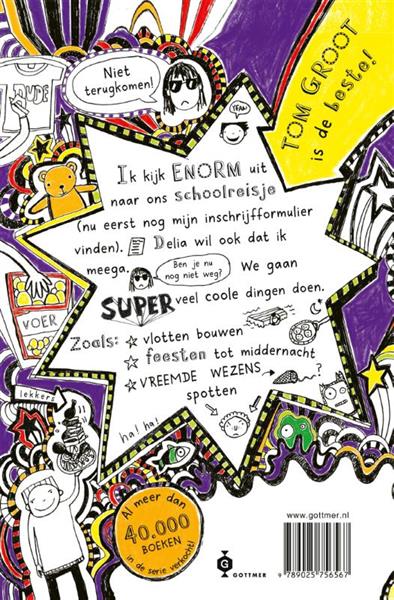 DUDE
Niet
terugkomen!
TEAM
TOM GROOT
is de beste!
Ik kijk ENORM uit
naar ons schoolreisje
(nu eerst nog mijn inschrijfformulier
vinden). Delia wil ook dat ik
meega.
Ben je nu
nog niet weg?
We gaan
SUPER veel coole dingen doen.
Zoals: vlotten bouwen
feesten tot middernacht
VREEMDE WEZENS
spotten
?
VOER
lekkers
ha! ha!
Al meer dan
40.000
BOEKEN
in de serie verkocht!
G
GOTTMER
www.gottmer.nl
9 789025 756567